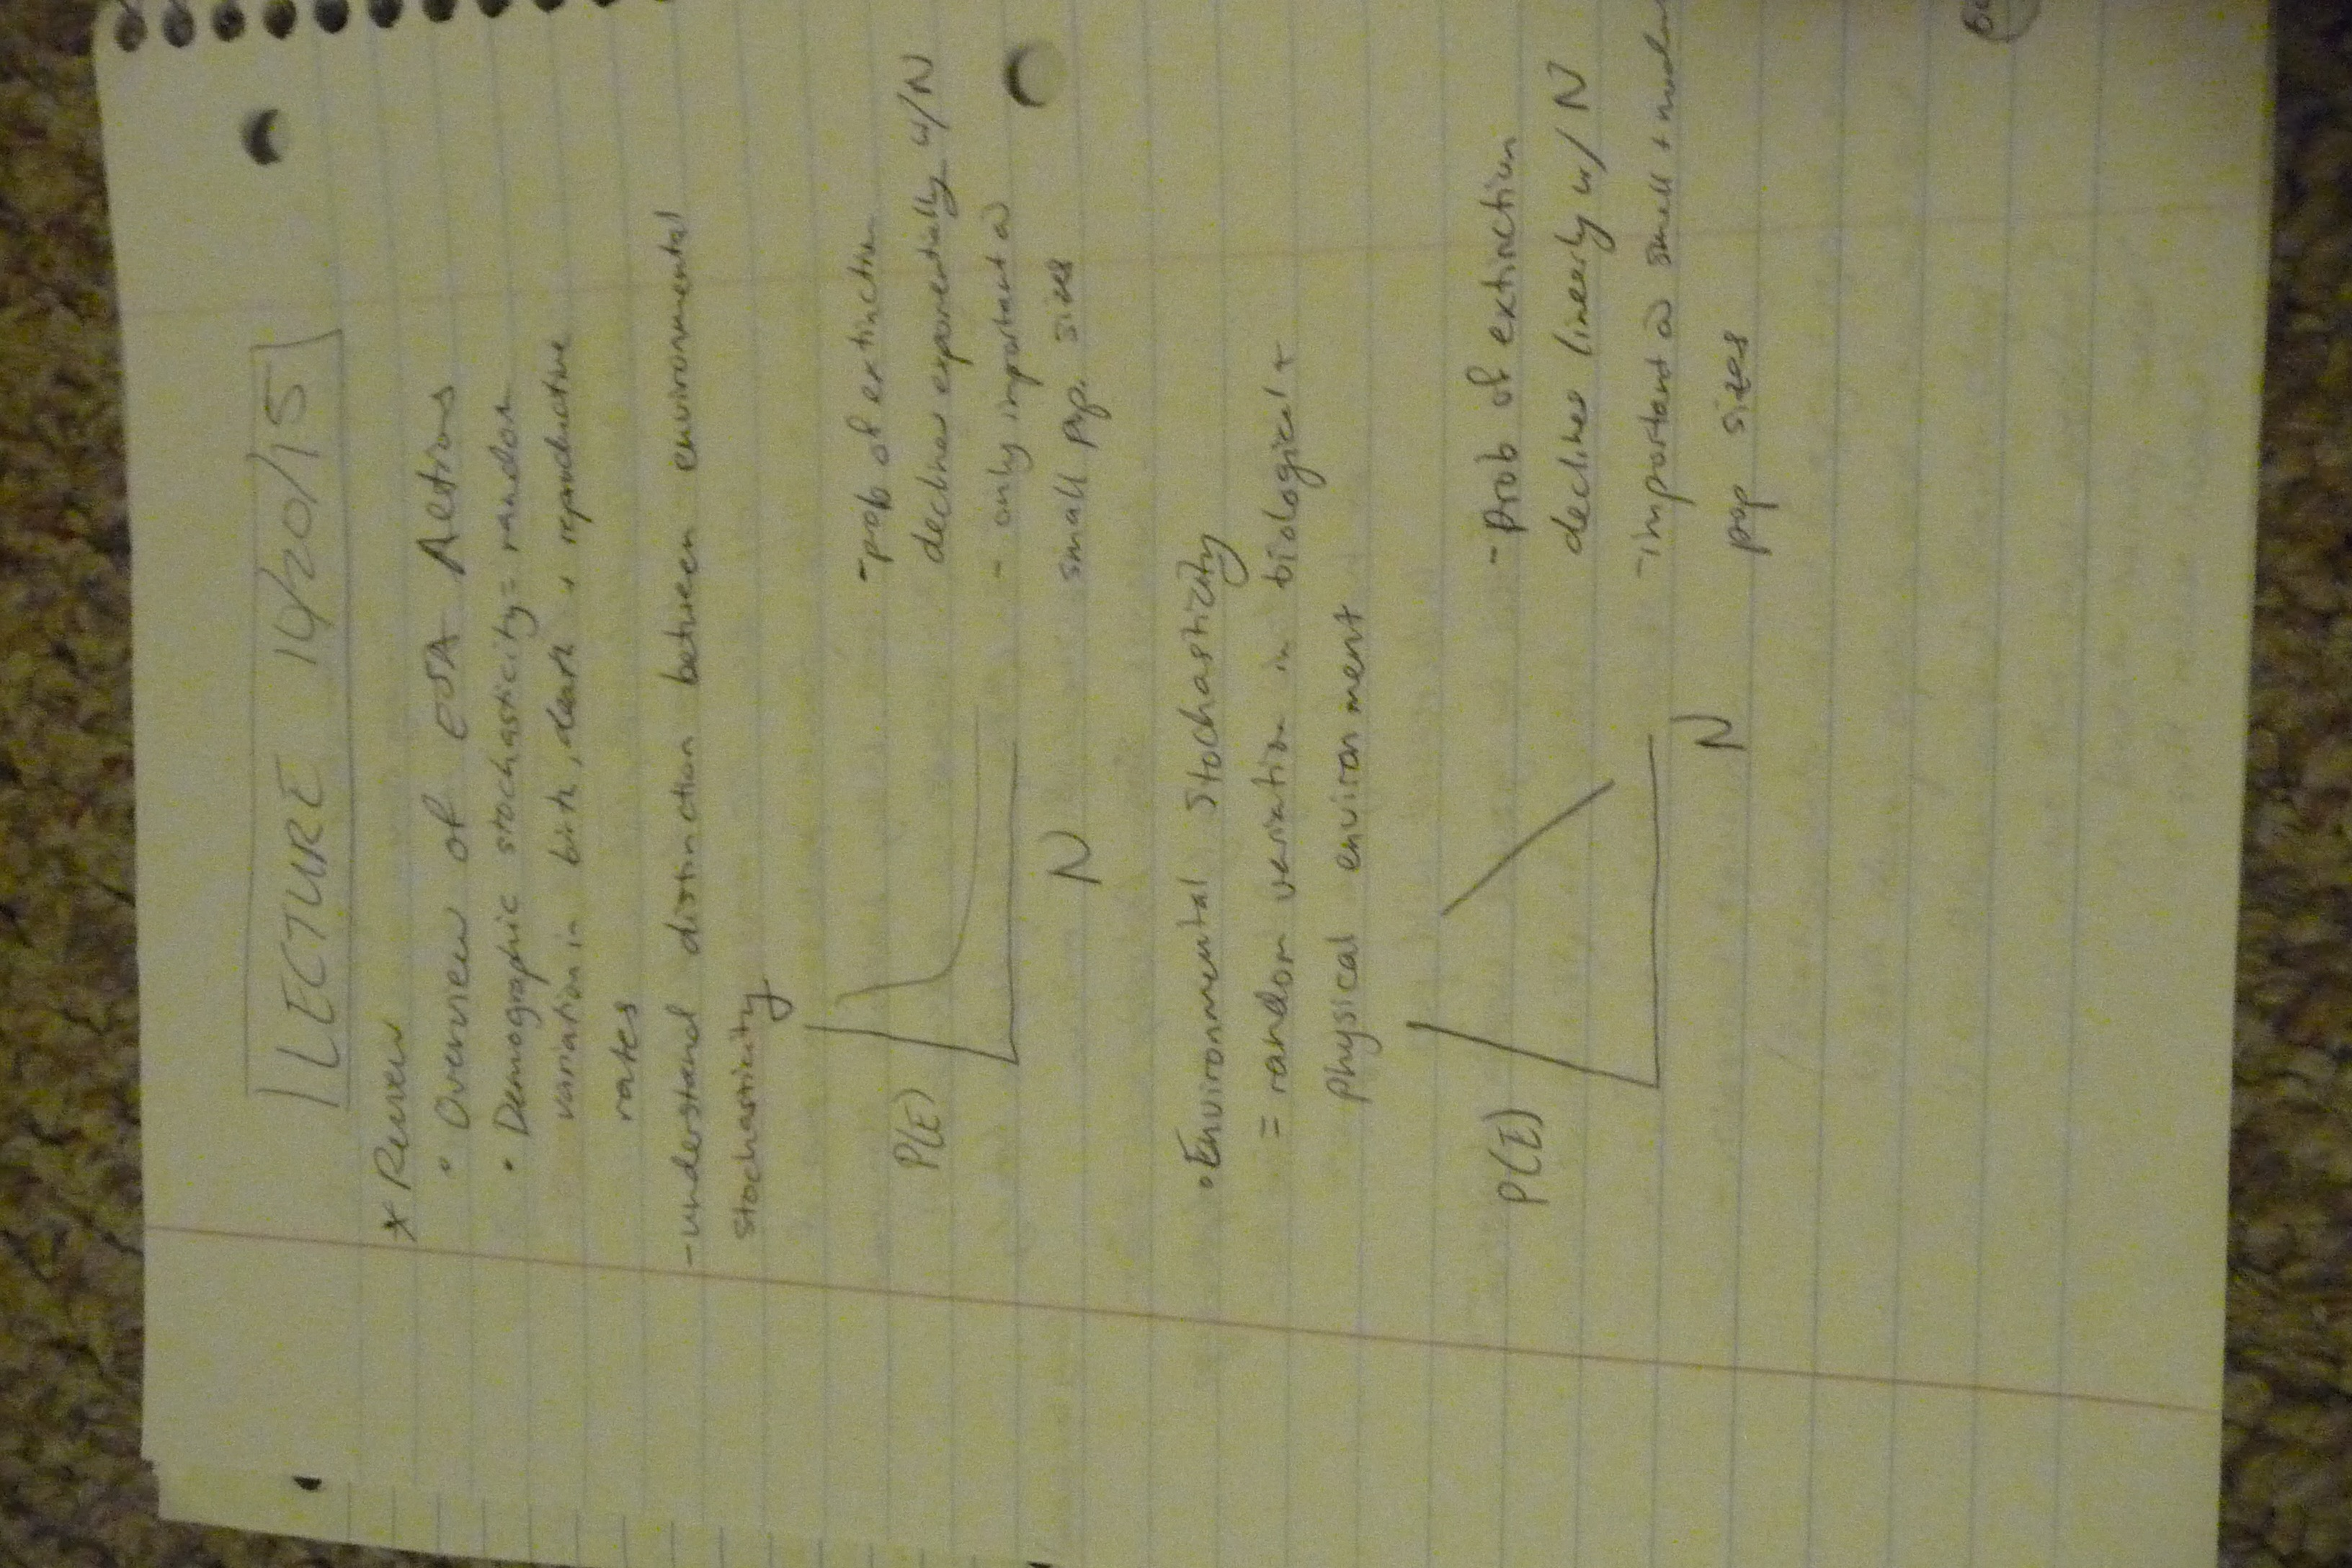 LECTURE 10/20/15
* Review
• Overview of ESA Actions
• Demographic stochasticity = random
variation in birth, death + reproductive
rates
- understand distinction between environmental
stochasticity
P(E)
N
- prob of extinction
declines exponentially w/ N
- only important @
small pop. sizes
• Environmental Stochasticity
= random variation in biological +
physical environment
P(E)
N
- Prob of extinction
declines linearly w/ N
- important @ small +
pop sizes